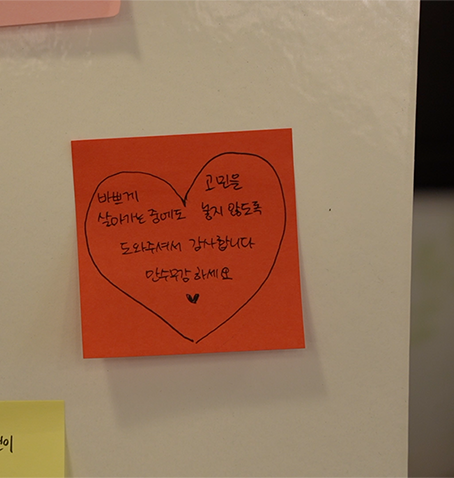 바쁘게 고민을
살아가는 중에도 놓지 않도록
도와주셔서 감사합니다
만수무강 하세요